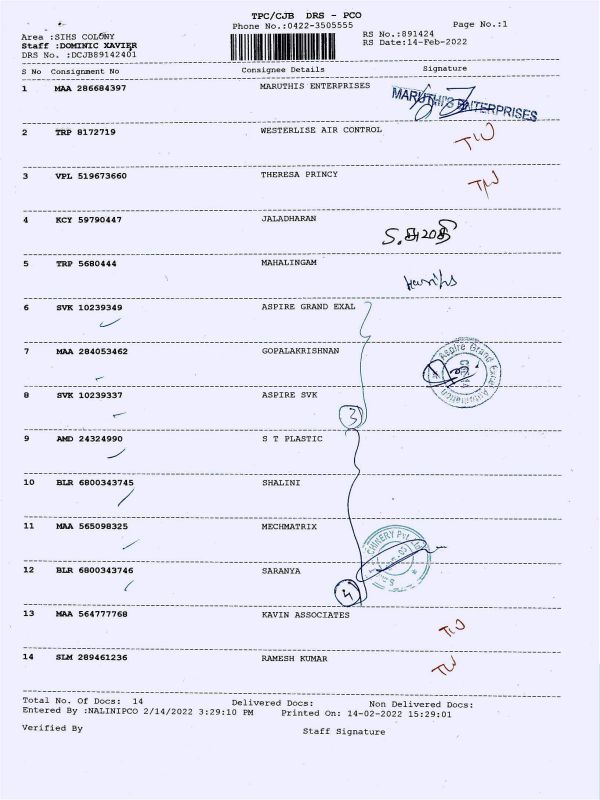 TPC/CJB DRS - PCO
Phone No.:0422-3505555 Page No.:1
Area :SIHS COLONY RS No.:891424
Staff :DOMINIC XAVIER RS Date:14-Feb-2022
DRS No. :DCJB89142401
S No Consignment No Consignee Details Signature
1 MAA 286684397 MARUTHIS ENTERPRISES
MARUTHI'S ENTERPRISES
2 TRP 8172719 WESTERLISE AIR CONTROL
3 VPL 519673660 THERESA PRINCY
4 KCY 59790447 JALADHARAN
5 TRP 5680444 MAHALINGAM
6 SVK 10239349 ASPIRE GRAND EXAL
7 MAA 284053462 GOPALAKRISHNAN
Aspire Grand Exel Automation
8 SVK 10239337 ASPIRE SVK
3
9 AMD 24324990 S T PLASTIC
10 BLR 6800343745 SHALINI
11 MAA 565098325 MECHMATRIX
12 BLR 6800343746 SARANYA
4
13 MAA 564777768 KAVIN ASSOCIATES
14 SLM 289461236 RAMESH KUMAR
Total No. Of Docs: 14 Delivered Docs: Non Delivered Docs:
Entered By :NALINIPCO 2/14/2022 3:29:10 PM Printed On: 14-02-2022 15:29:01
Verified By Staff Signature